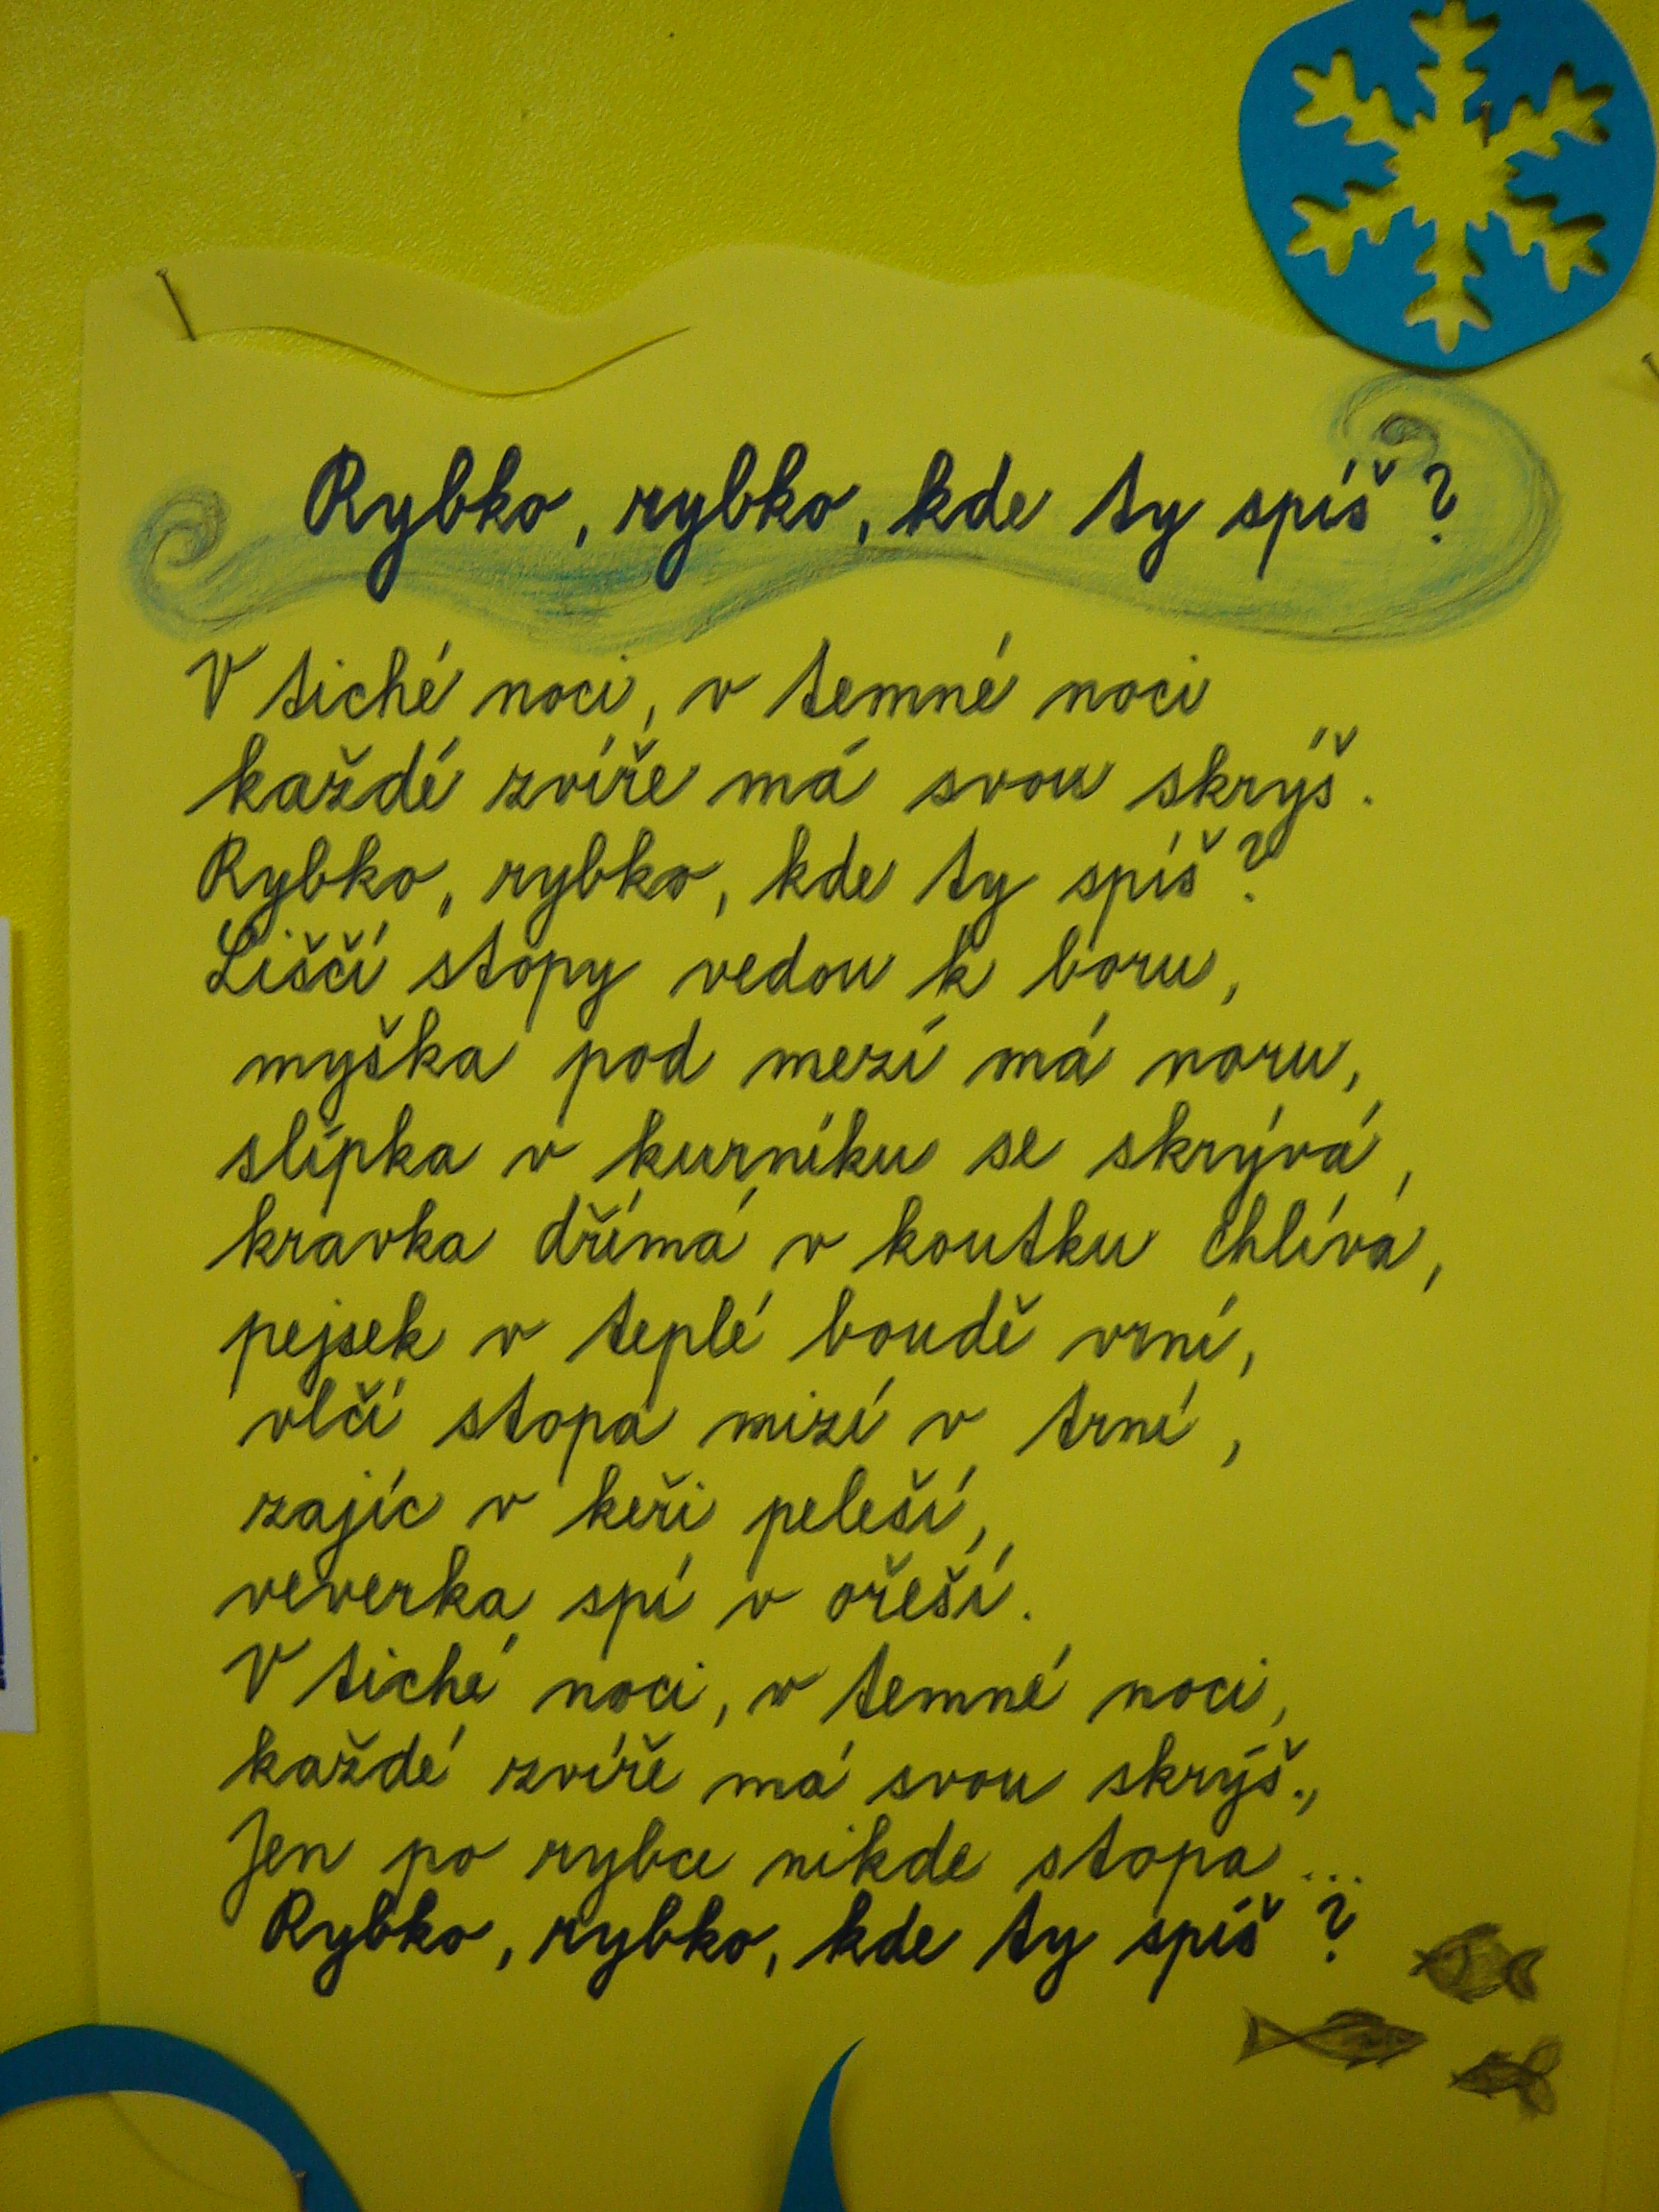 Rybko, rybko, kde ty spíš?
V tiché noci, v temné noci
každé zvíře má svou skrýš.
Rybko, rybko, kde ty spíš?
Liščí stopy vedou k boru,
myška pod mezí má noru,
slípka v kurníku se skrývá,
kravka dřímá v koutku chlívá,
pejsek v teplé boudě vrní,
vlčí stopa mizí v trní,
zajíc v keři peleší,
veverka spí v ořeší.
V tiché noci, v temné noci,
každé zvíře má svou skrýš.,
Jen po rybce nikde stopa...
Rybko, rybko, kde ty spíš?